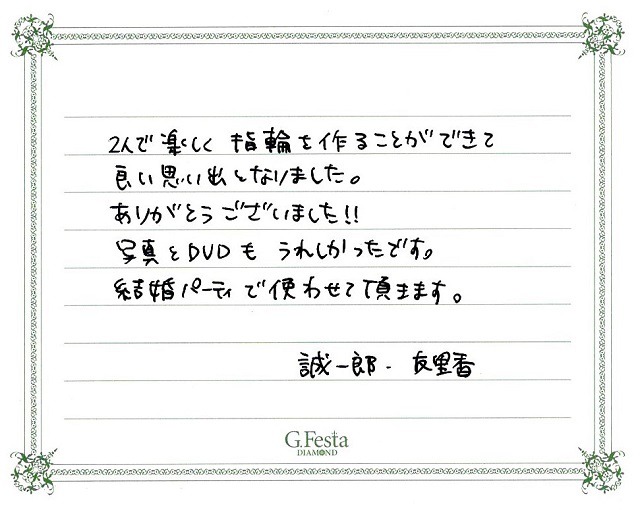 2人で楽しく 指輪を作ることができて
良い思い出となりました。
ありがとうございました!!
写真とDVDも うれしかったです。
結婚パーティで使わせて頂きます。
誠一郎・友里香
G.Festa
DIAMOND